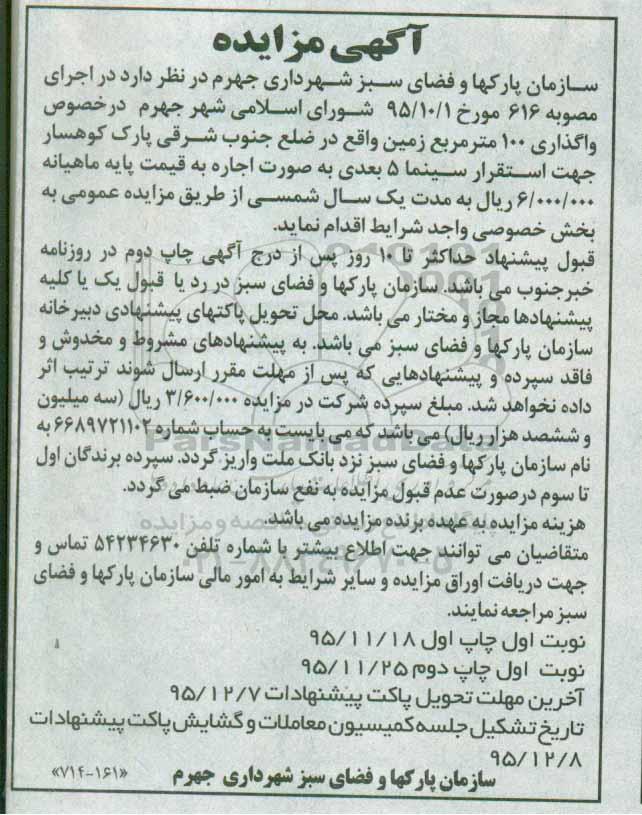 آگهی مزایده
سازمان پارکها و فضای سبز شهرداری جهرم در نظر دارد در اجرای
مصوبه ۶۱۶ مورخ ۹۵/۱۰/۱ شورای اسلامی شهر جهرم درخصوص
واگذاری ۱۰۰ مترمربع زمین واقع در ضلع جنوب شرقی پارک کوهسار
جهت استقرار سینما ۵ بعدی به صورت اجاره به قیمت پایه ماهیانه
۶/۰۰۰/۰۰۰ ریال به مدت یک سال شمسی از طریق مزایده عمومی به
بخش خصوصی واجد شرایط اقدام نماید.
قبول پیشنهاد حداکثر تا ۱۰ روز پس از درج آگهی چاپ دوم در روزنامه
خبرجنوب می باشد. سازمان پارکها و فضای سبز در رد یا قبول یک یا کلیه
پیشنهادها مجاز و مختار می باشد. محل تحویل پاکتهای پیشنهادی دبیرخانه
سازمان پارکها و فضای سبز می باشد. به پیشنهادهای مشروط و مخدوش و
فاقد سپرده و پیشنهادهایی که پس از مهلت مقرر ارسال شوند ترتیب اثر
داده نخواهد شد. مبلغ سپرده شرکت در مزایده ۳/۶۰۰/۰۰۰ ریال (سه میلیون
و ششصد هزار ریال) می باشد که می بایست به حساب شماره ۶۶۸۹۷۲۱۱۰۲ به
نام سازمان پارکها و فضای سبز نزد بانک ملت واریز گردد. سپرده برندگان اول
تا سوم درصورت عدم قبول مزایده به نفع سازمان ضبط می گردد.
هزینه مزایده به عهده برنده مزایده می باشد.
متقاضیان می توانند جهت اطلاع بیشتر با شماره تلفن ۵۴۲۳۴۶۳۰ تماس و
جهت دریافت اوراق مزایده و سایر شرایط به امور مالی سازمان پارکها و فضای
سبز مراجعه نمایند.
نوبت اول چاپ اول ۹۵/۱۱/۱۸
نوبت اول چاپ دوم ۹۵/۱۱/۲۵
آخرین مهلت تحویل پاکت پیشنهادات ۹۵/۱۲/۷
تاریخ تشکیل جلسه کمیسیون معاملات و گشایش پاکت پیشنهادات
۹۵/۱۲/۸
سازمان پارکها و فضای سبز شهرداری جهرم «۷۱۴-۱۶۱»
ParsNamadData
۰۲۱-۸۸۳۴۹۶۷۰-۵